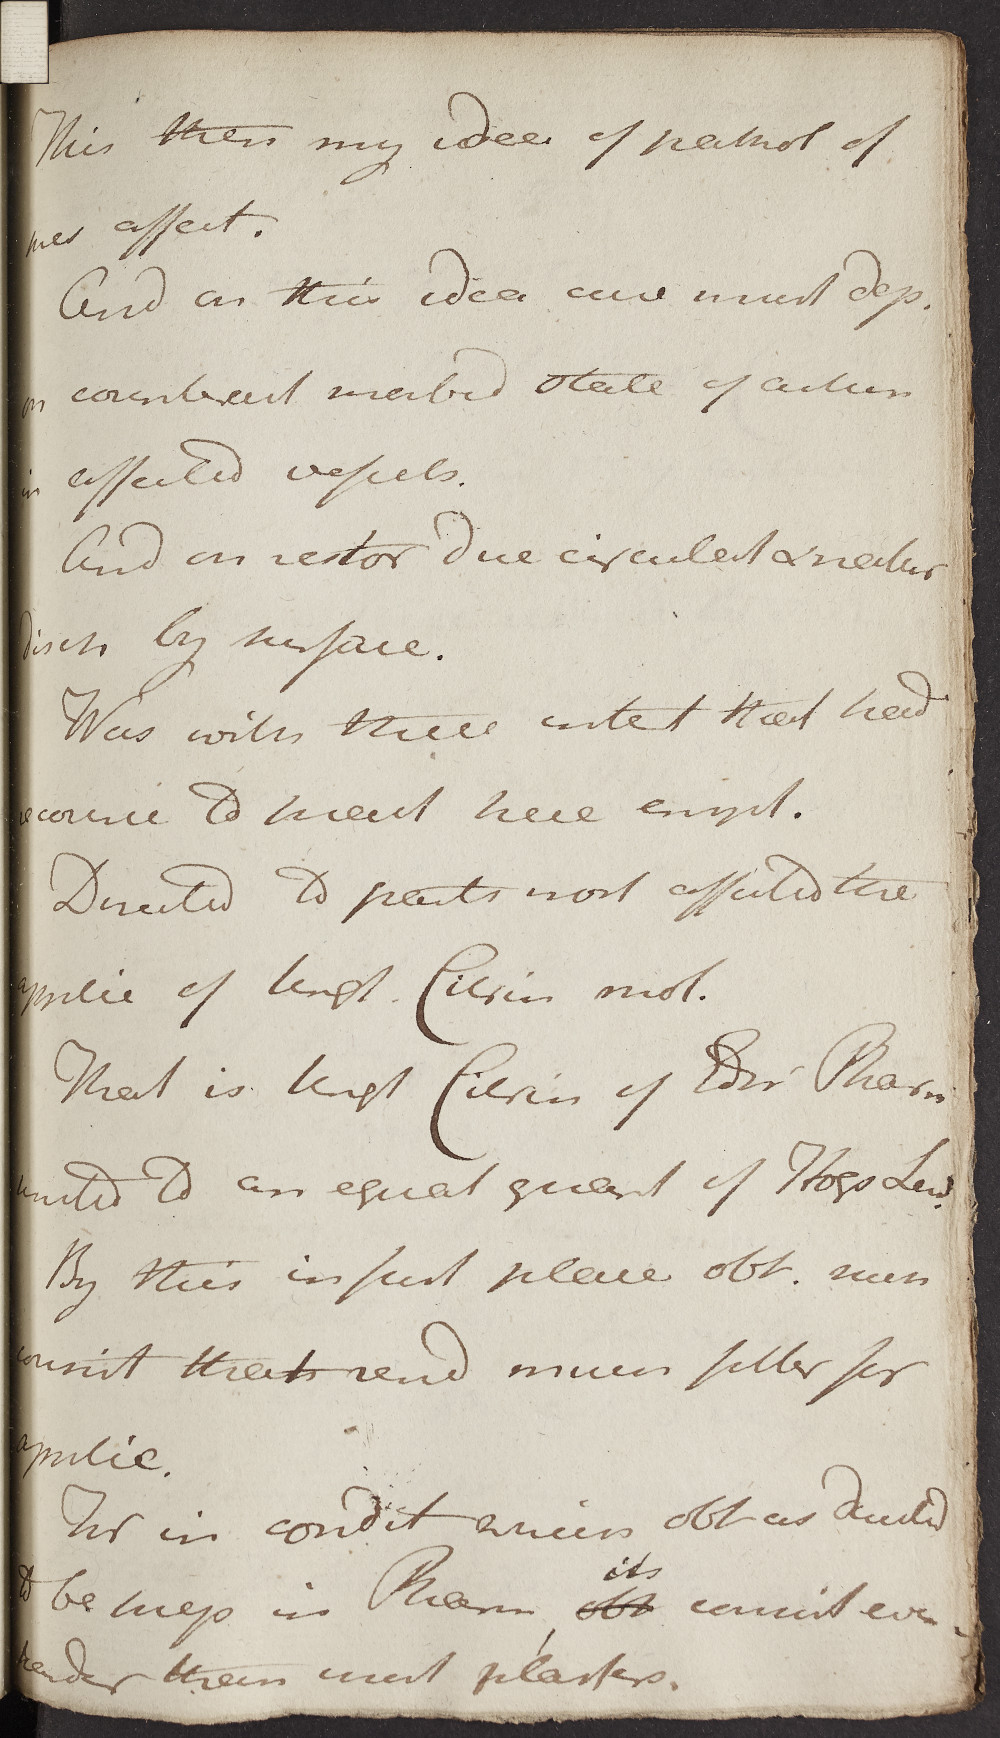 This then my idea of pathol of
mes affect.
And on this idea cure must dep.
on counteract morbid state of action
in affected vessels.
And on restor due circulat & natur
disch by surface.
Was with these intent that had
recourse to treat here empl.
Directed to parts most affected the
applic of Ungt. Citrin mol.
That is Ungt Citrin of Edin Pharm
united to an equal quant of Hogs Lard.
By this in first place obt. such
consist that rend much fitter for
applic.
For in condit which obt as directed
to be prep in Pharm, its consist even
harder than most plasters.